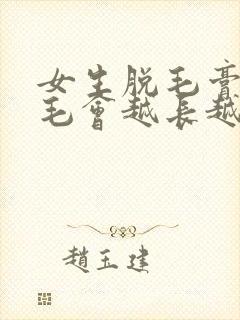 女生脱毛膏
毛會越长越
趙玉建